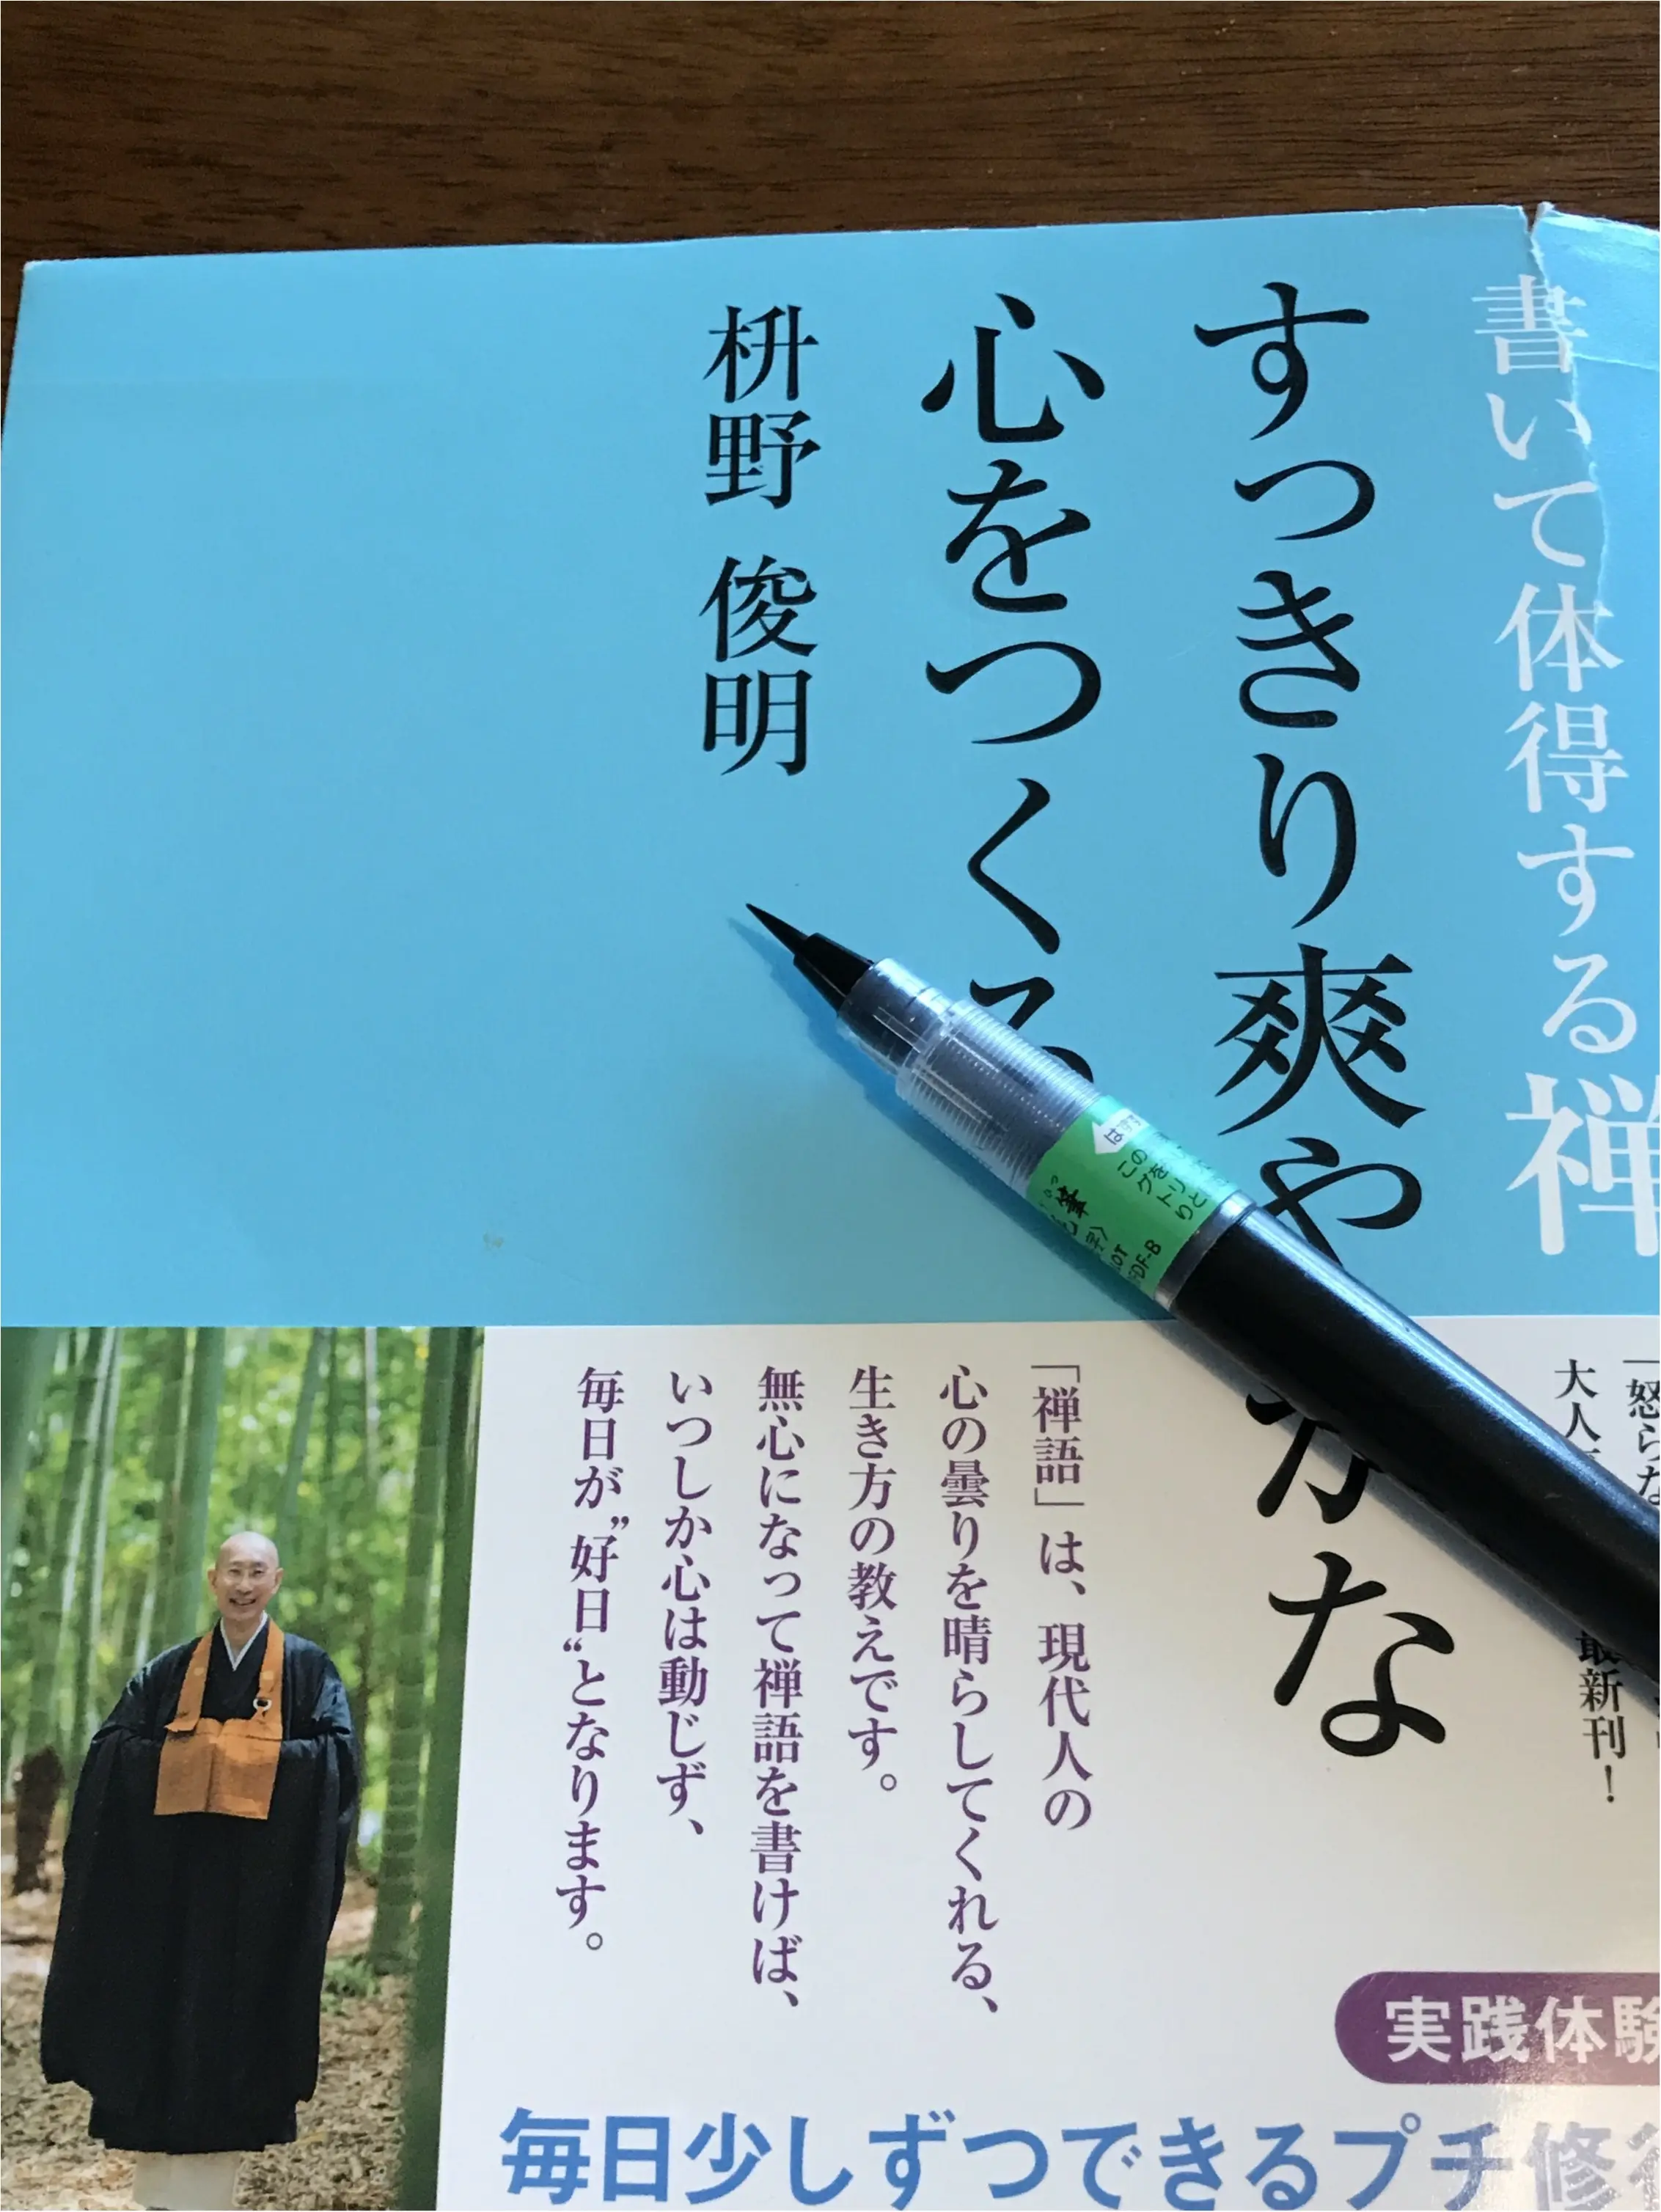 書いて体得する禅
すっきり爽やかな
心をつくる
枡野 俊明
はずす
この
筆
DF-B
「怒らな
大人
最新刊！
「禅語」は、現代人の
心の曇りを晴らしてくれる、
生き方の教えです。
無心になって禅語を書けば、
いつしか心は動じず、
毎日が〝好日〟となります。
実践体験
毎日少しずつできるプチ修行